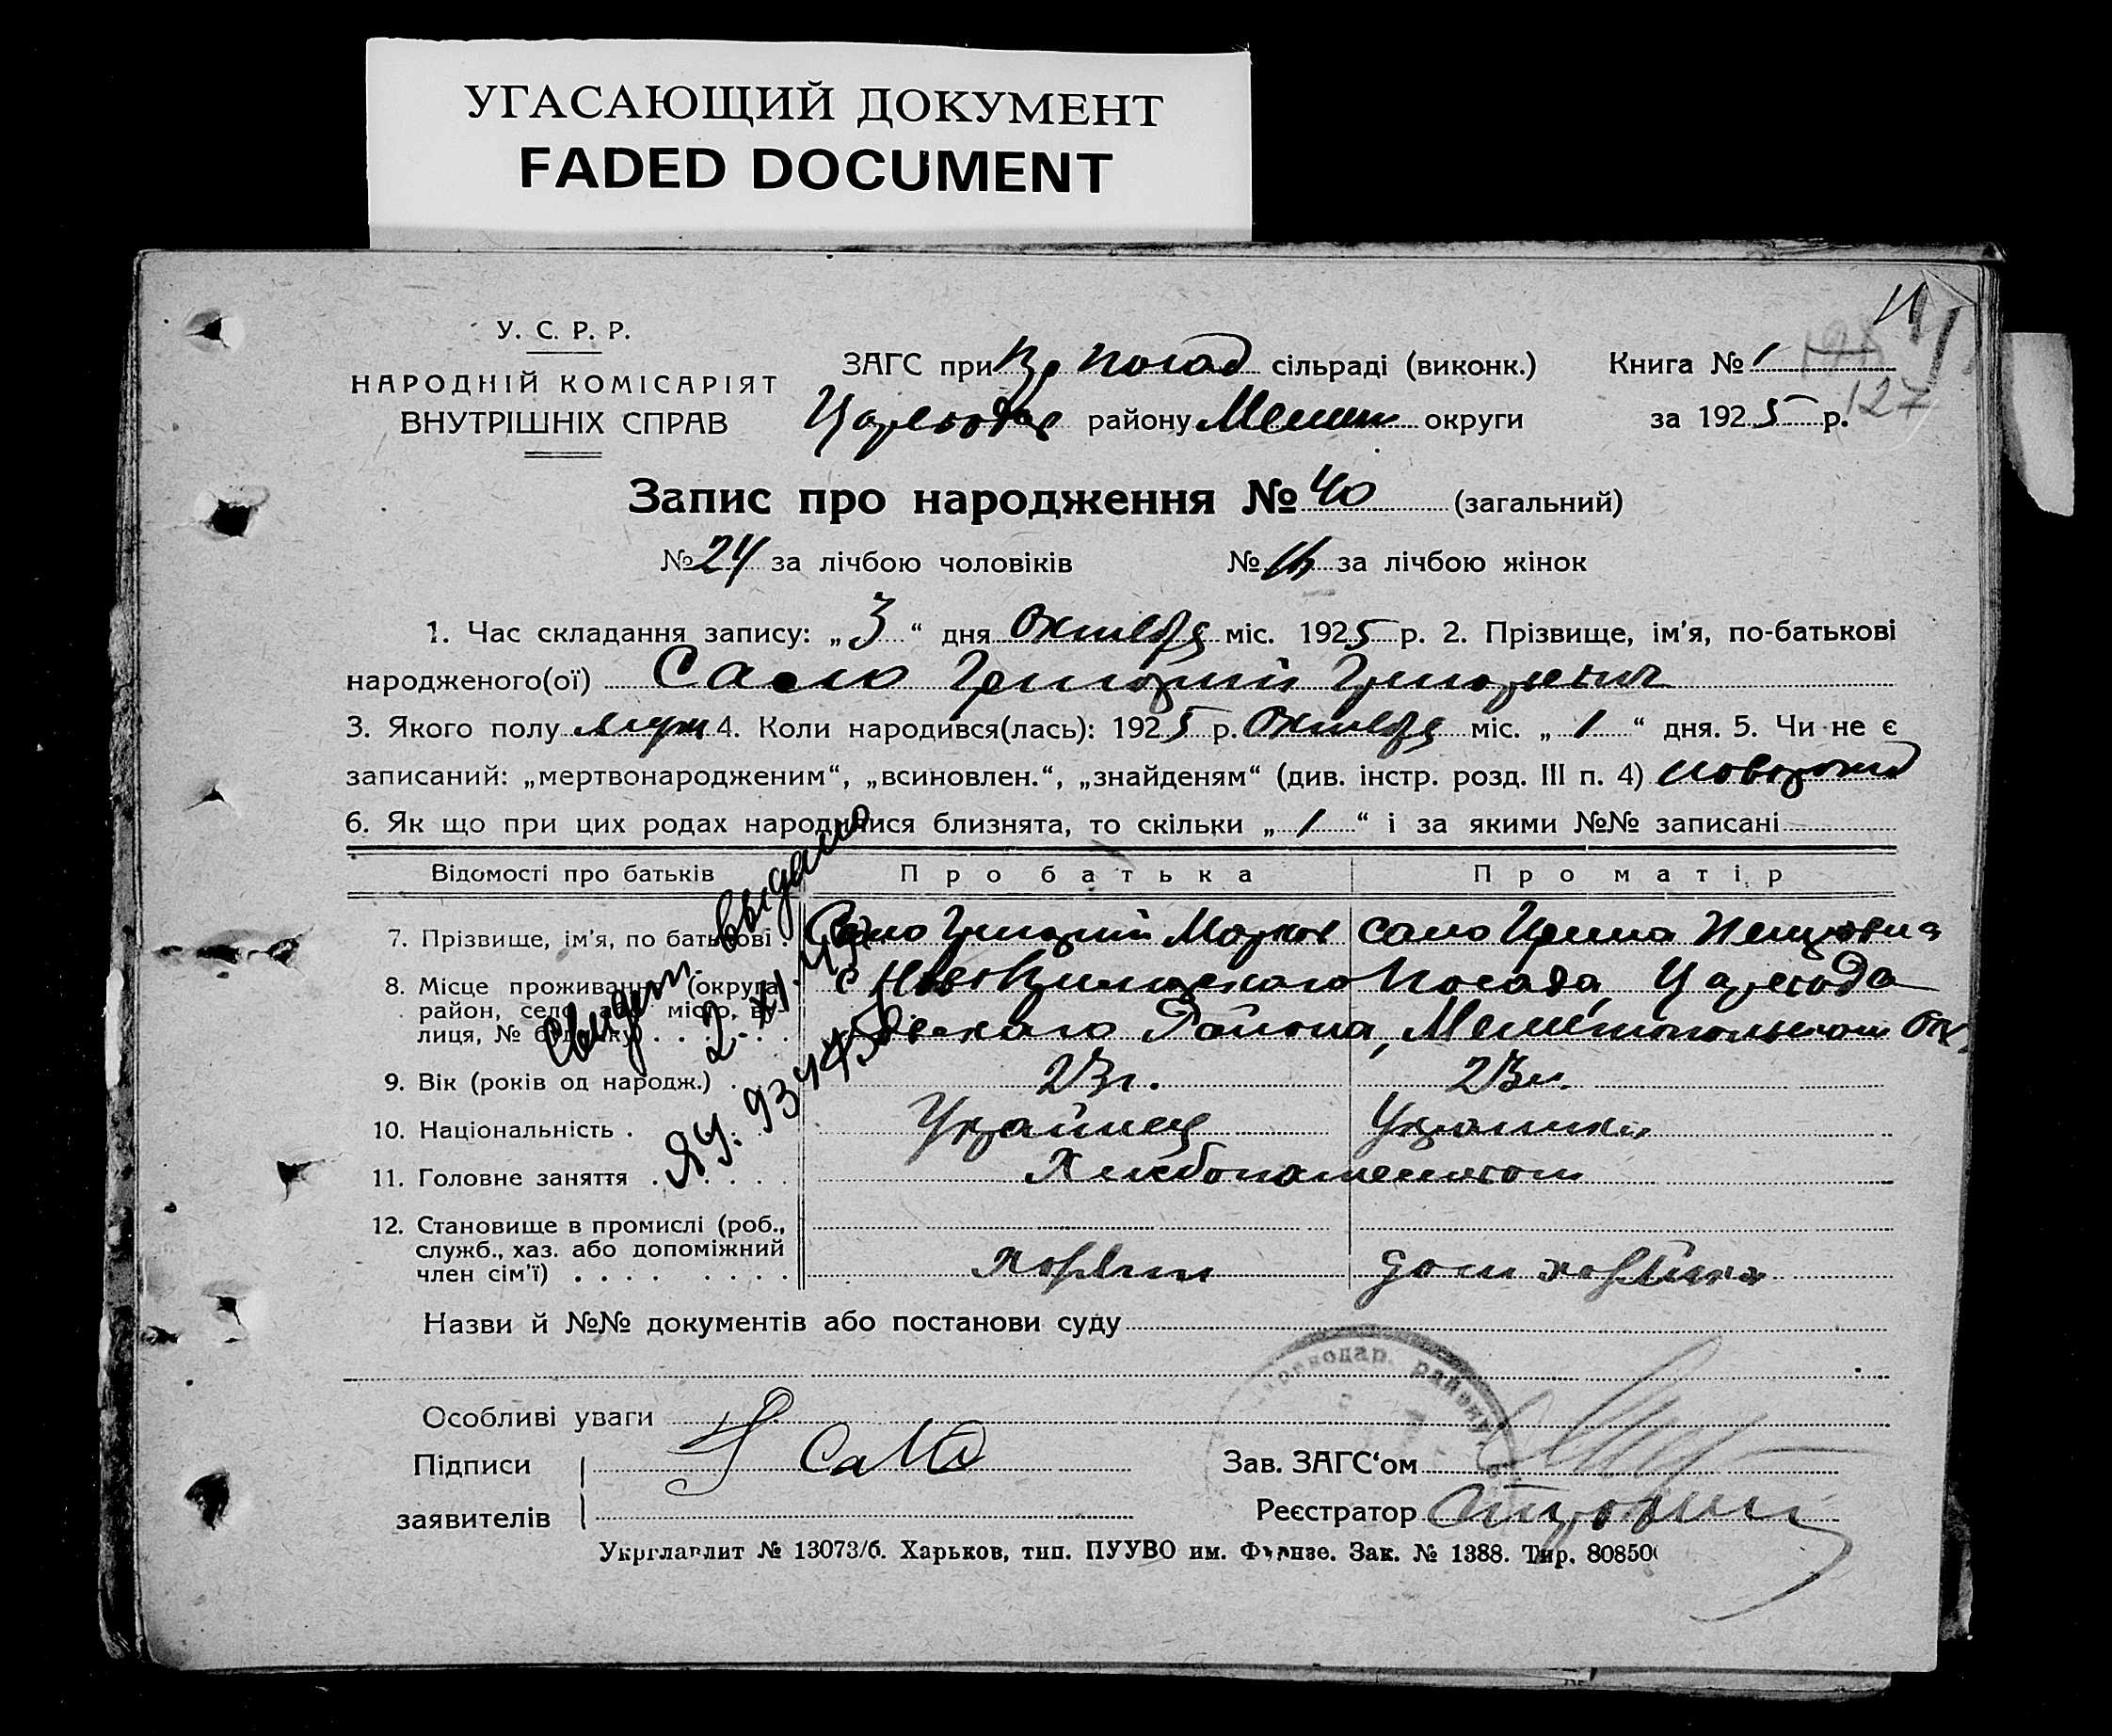 УГАСАЮЩИЙ ДОКУМЕНТ
FADED DOCUMENT
У. С. Р. Р.
НАРОДНІЙ КОМІСАРІЯТ
ВНУТРІШНІХ СПРАВ
ЗАГС при Посад сільраді (виконк.)
району Мелит округи
Книга № 1
за 1925 р.
127
Запис про народження № 40 (загальний)
№ 24 за лічбою чоловіків № 16 за лічбою жінок
1. Час складання запису: „3“ дня Октября міс. 1925 р. 2. Прізвище, ім'я, по-батькові
народженого(ої) Сало Григорий Григорьевич
3. Якого полу муж 4. Коли народився(лась): 1925 р. Октября міс. „1“ дня. 5. Чи не є
записаний: „мертвонародженим“, „всиновлен.“, „знайденям“ (див. інстр. розд. III п. 4) новорожд
6. Як що при цих родах народилися близнята, то скільки „1“ і за якими №№ записані
Відомості про батьків Про батька Про матір
7. Прізвище, ім'я, по батькові Сало Григорий Марков Сало Ирина
8. Місце проживання (округа, район, село або місто, вулиця, № будинку) Посада,
Района, Мелитопольской Ок.
9. Вік (років од народж.) 23 г. 23 г.
10. Національність Украйнец Украинка
11. Головне заняття Хлебопашеством
12. Становище в промислі (роб.,
служб., хаз. або допоміжний
член сім'ї) хозяин дом хозяйка
Свидет. выдано
2-XI-45
ЯУ. 937450
Назви й №№ документів або постанови суду
Особливі уваги
Підписи
заявителів
Сало
Зав. ЗАГС'ом
Реєстратор
Укрглавлит № 13073/б. Харьков, тип. ПУУВО им. Фрунзе. Зак. № 1388. Тир. 80850